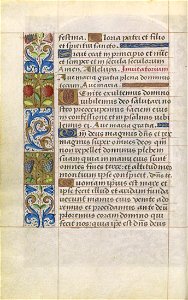 festina. Gloria patri et filio
et spiritui sancto.
Sicut erat in principio et nunc
et semper et in secula seculorum
Amen. Alleluya. Invitatorium
Ave maria gratia plena dominus
tecum. Ave maria.
Venite exultemus domino
iubilemus deo salutari no
stro preoccupemus faciem eius
in confessione et in psalmis iubile
mus ei. Ave maria gratia
Quoniam deus magnus dominus et rex
magnus super omnes deos quoniam
non repellet dominus plebem
suam quia in manu eius sunt
omnes fines terre: et altitudines
montium ipse conspicit. dominus
Quoniam ipsius est mare et
ipse fecit illud et aridam fun
daverunt manus eius venite ado
remus et procidamus ante deum
ploremus coram domino qui
fecit nos: quia ipse est dominus deus